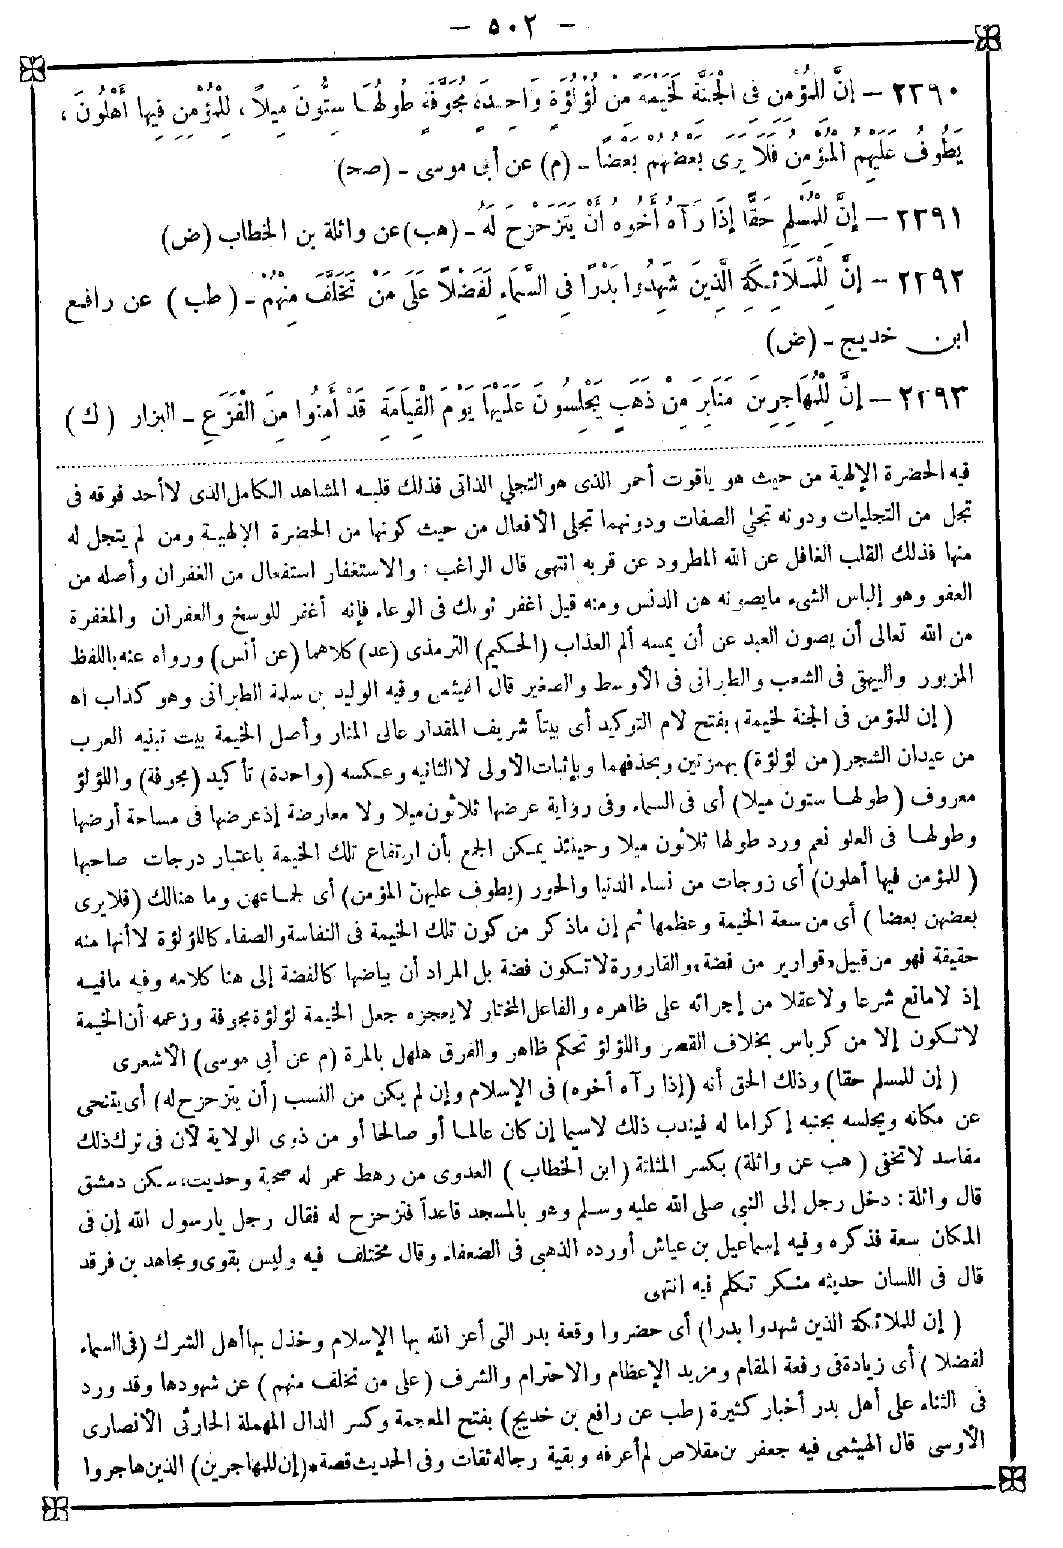 - ٥٠٢ -
٢٢٩٠ - إنَّ لِلْمُؤْمِنِ فِى الْجَنَّةِ لَخَيْمَةً مِنْ لُؤْلُؤَةٍ وَاحِدَةٍ مُجَوَّفَةٍ طُولُهَا سِتُّونَ مِيلاً، لِلْمُؤْمِنِ فِيهَا أَهْلُونَ،
يَطُوفُ عَلَيْهِمُ الْمُؤْمِنُ فَلَا يَرَى بَعْضُهُمْ بَعْضًا - (م) عن أبى موسى - (صح)
٢٢٩١ - إنَّ لِلْمُسْلِمِ حَقًّا إذَا رَآهُ أَخُوهُ أَنْ يَتَزَحْزَحَ لَهُ - (هب) عن واثلة بن الخطاب (ض)
٢٢٩٢ - إنَّ لِلْمَلَائِكَةِ الَّذِينَ شَهِدُوا بَدْرًا فِى السَّمَاءِ لَفَضْلاً عَلَى مَنْ تَخَلَّفَ مِنْهُمْ - (طب) عن رافع
ابن خديج - (ض)
٢٢٩٣ - إنَّ لِلْمُهَاجِرِينَ مَنَابِرَ مِنْ ذَهَبٍ يَجْلِسُونَ عَلَيْهَا يَوْمَ الْقِيَامَةِ قَدْ أَمِنُوا مِنَ الْفَزَعِ - البزار (ك)
فيه الحضرة الإلهية من حيث هو ياقوت أحمر الذى هو التجلي الذاتى فذلك قلبه المشاهد الكامل الذى لا أحد فوقه فى
تجل من التجليات ودونه تجلى الصفات ودونهما تجلى الأفعال من حيث كونها من الحضرة الإلهية ومن لم يتجل له
منها فذلك القلب الغافل عن الله المطرود عن قربه انتهى قال الراغب: والاستغفار استفعال من الغفران وأصله من
العفو وهو إلباس الشىء ما يصونه من الدنس ومنه قيل اغفر ثوبك فى الوعاء فإنه أغفر للوسخ والغفران والمغفرة
من الله تعالى أن يصون العبد عن أن يمسه ألم العذاب (الحكيم) الترمذى (عد) كلاهما (عن أنس) ورواه عنه باللفظ
المزبور والبيهقى فى الشعب والطبرانى فى الأوسط والصغير قال الهيثمى وفيه الوليد بن سلمة الطبرانى وهو كذاب اه
(إن للمؤمن فى الجنة لخيمة) بفتح لام التوكيد أى بيتاً شريف المقدار عالى المنار وأصل الخيمة بيت تبنيه العرب
من عيدان الشجر (من لؤلؤة) بهمزتين وبحذفهما وبإثبات الأولى لا الثانيه وعكسه (واحدة) تأكيد (مجوفة) واللؤلؤ
معروف (طولها ستون ميلا) أى فى السماء وفى رواية عرضها ثلاثون ميلا ولا معارضة إذ عرضها فى مساحة أرضها
وطولها فى العلو نعم ورد طولها ثلاثون ميلا وحينئذ يمكن الجمع بأن ارتفاع تلك الخيمة باعتبار درجات صاحبها
(للمؤمن فيها أهلون) أى زوجات من نساء الدنيا والحور (يطوف عليهن المؤمن) أى لجماعهن وما هنالك (فلا يرى
بعضهن بعضا) أى من سعة الخيمة وعظمها ثم إن ما ذكر من كون تلك الخيمة فى النفاسة والصفاء كاللؤلؤة لا أنها منه
حقيقة فهو من قبيل «قوارير من فضة» والقارورة لا تكون فضة بل المراد أن بياضها كالفضة إلى هنا كلامه وفيه مافيه
إذ لا مانع شرعا ولا عقلا من إجرائه على ظاهره والفاعل المختار لا يعجزه جعل الخيمة لؤلؤة مجوفة وزعمه أن الخيمة
لا تكون إلا من كرباس بخلاف القصر واللؤلؤ تحكم ظاهر والفرق هلهل بالمرة (م عن أبى موسى) الأشعرى
(إن للمسلم حقا) وذلك الحق أنه (إذا رآه أخوه) فى الإسلام وإن لم يكن من النسب (أن يتزحزح له) أى يتنحى
عن مكانه ويجلسه بجنبه إكراما له فيندب ذلك لاسيما إن كان عالما أو صالحا أو من ذوى الولاية لأن فى ترك ذلك
مفاسد لا تخفى (هب عن واثلة) بكسر المثلثة (ابن الخطاب) العدوى من رهط عمر له صحبة وحديث، سكن دمشق
قال واثلة: دخل رجل إلى النبى صلى الله عليه وسلم وهو بالمسجد قاعداً فتزحزح له فقال رجل يا رسول الله إن فى
المكان سعة فذكره وفيه إسماعيل بن عياش أورده الذهبى فى الضعفاء وقال مختلف فيه وليس بقوى ومجاهد بن فرقد
قال فى اللسان حديثه منكر تكلم فيه انتهى
(إن للملائكة الذين شهدوا بدرا) أى حضروا وقعة بدر التى أعز الله بها الإسلام وخذل بها أهل الشرك (فى السماء
لفضلا) أى زيادة فى رفعة المقام ومزيد الإعظام والاحترام والشرف (على من تخلف منهم) عن شهودها وقد ورد
فى الثناء على أهل بدر أخبار كثيرة (طب عن رافع بن خديج) بفتح المعجمة وكسر الدال المهملة الحارثى الأنصارى
الأوسى قال الهيثمى فيه جعفر بن مقلاص لم أعرفه وبقية رجاله ثقات وفى الحديث قصة * (إن للمهاجرين) الذين هاجروا